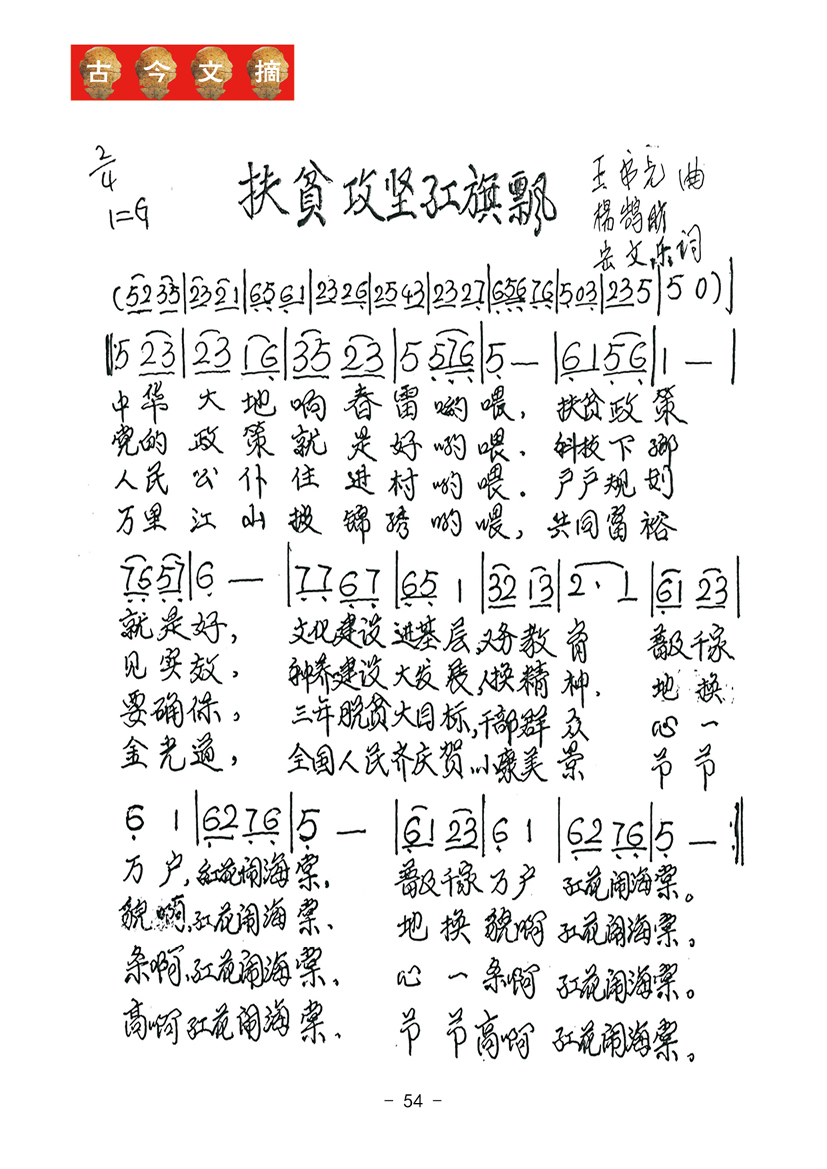 古今文摘
2/4
扶貧攻坚红旗飘
1=G
曲
楊鹤
文乐词
(52 35|23 21|65 61|23 26|25 43|23 27|656 76|5 03|23 5|5 0)|
‖:5 23|23 16|35 23|5 576|5 —|61 56|1 —|
中华大地响春雷哟喂，扶贫政策
党的政策就是好哟喂．科技下鄉
人民公仆住进村哟喂．户户规划
万里江山披锦绣哟喂，共同富裕
76 57|6 —|77 67|65 1|32 13|2· 1|61 23|
就是好，文化建设进基层，义务教育普及千家
见实效．种养建设大发展，人换精神．地换
要确保，三年脱贫大目标，干部群众心一
金光道，全国人民齐庆贺，小康美景节节
6 1|62 76|5 —|61 23|6 1|62 76|5 —:‖
万户，红花闹海棠．普及千家万户红花闹海棠。
貌啊，红花闹海棠．地换貌啊红花闹海棠。
条啊，红花闹海棠．心一条啊红花闹海棠。
高啊红花闹海棠．节节高啊红花闹海棠。
- 54 -